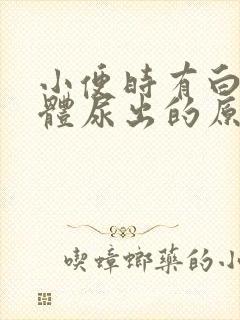 小便時有白
體尿出的原
喫蟑螂藥的小